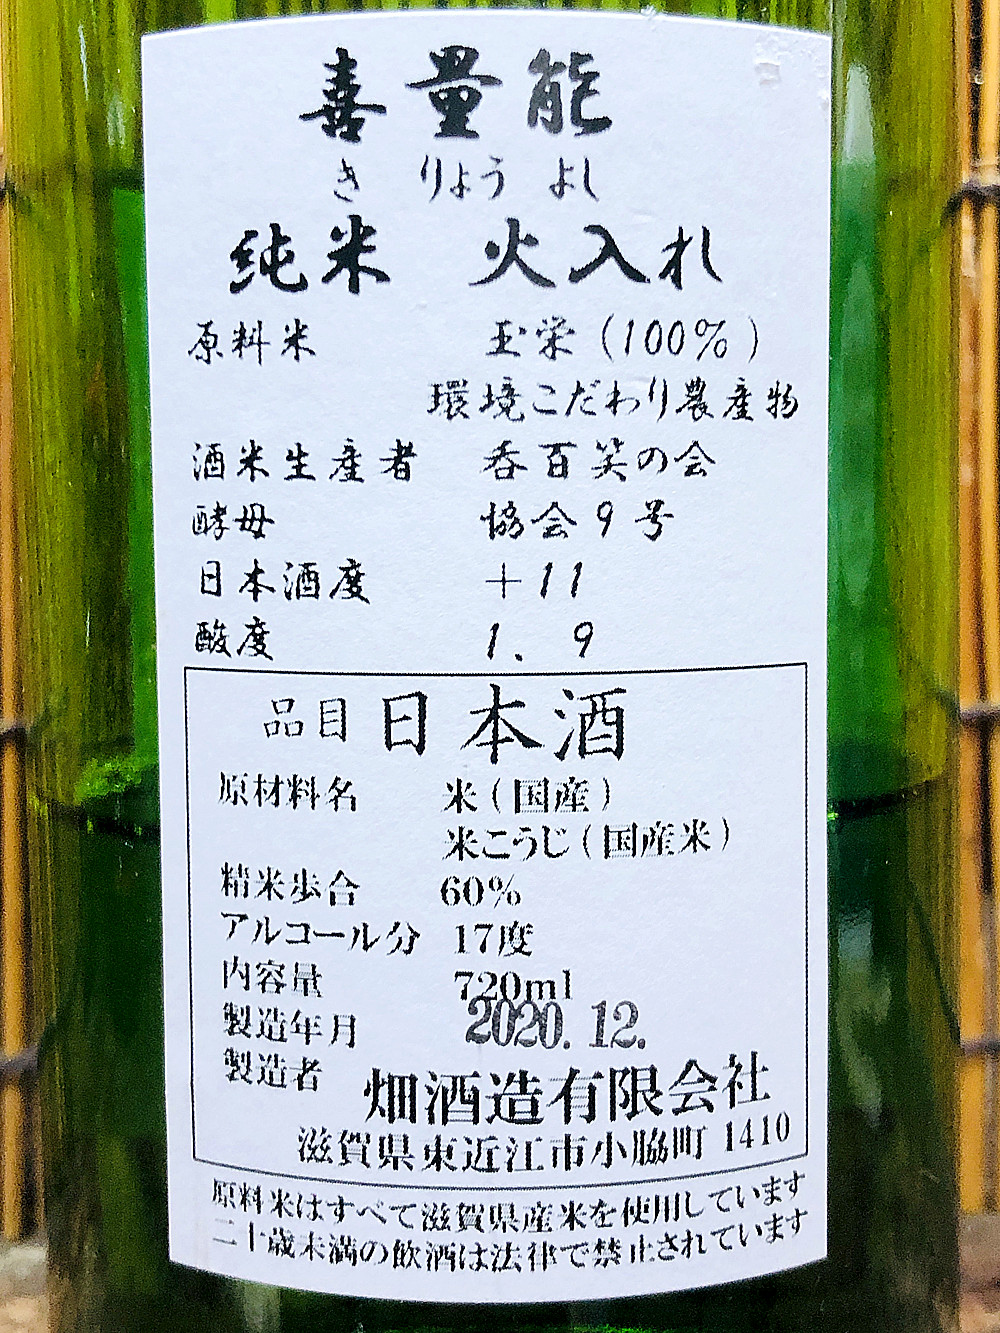 喜量能
きりょうよし
純米 火入れ
原料米 玉栄(100%)
環境こだわり農産物
酒米生産者 呑百笑の会
酵母 協会9号
日本酒度 +11
酸度 1.9
品目 日本酒
原材料名 米(国産)
米こうじ(国産米)
精米歩合 60%
アルコール分 17度
内容量 720ml
製造年月 2020.12.
製造者 畑酒造有限会社
滋賀県東近江市小脇町1410
原料米はすべて滋賀県産米を使用しています
二十歳未満の飲酒は法律で禁止されています